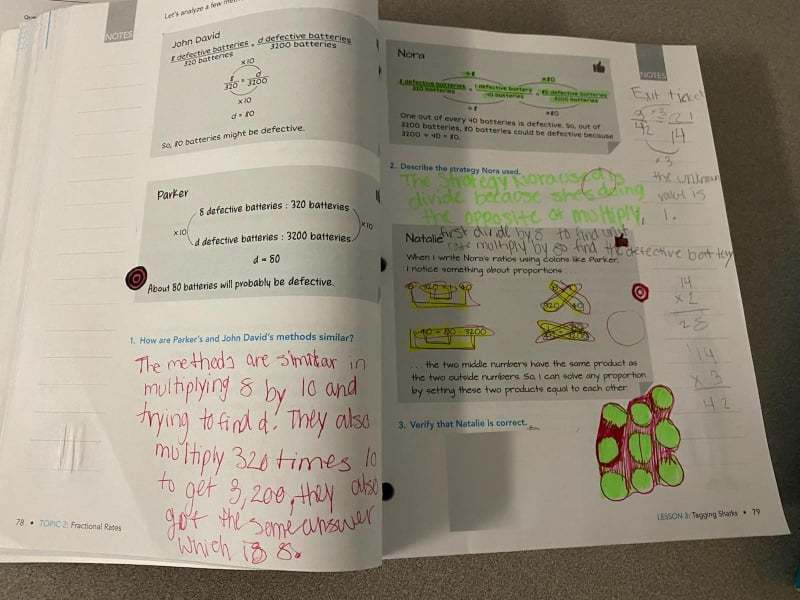 Let's analyze a few
NOTES
John David
8 defective batteries = d defective batteries
320 batteries 3200 batteries
×10
8 = d
320 3200
×10
d = 80
So, 80 batteries might be defective.
Parker
8 defective batteries : 320 batteries
×10 ×10
d defective batteries : 3200 batteries
d = 80
About 80 batteries will probably be defective.
1. How are Parker's and John David's methods similar?
The methods are similar in
multiplying 8 by 10 and
trying to find d. They also
multiply 320 times 10
to get 3,200, they also
got the same answer
which is 8.
78 • TOPIC 2: Fractional Rates
Nora
÷8 ×80
8 defective batteries = 1 defective battery = 80 defective batteries
320 batteries 40 batteries 3200 batteries
÷8 ×80
One out of every 40 batteries is defective. So, out of
3200 batteries, 80 batteries could be defective because
3200 ÷ 40 = 80.
2. Describe the strategy Nora used.
The strategy Nora used is
divide because shes doing
the opposite of multiply.
first divide by 8 to find
multiply by 80 find the defective battery
Natalie
When I write Nora's ratios using colons like Parker,
I notice something about proportions . . .
40 = 80 : 3200
. . . the two middle numbers have the same product as
the two outside numbers. So, I can solve any proportion
by setting these two products equal to each other.
3. Verify that Natalie is correct.
NOTES
Exit ticket
3
42 14
×3
the unknown
value is
1.
14
×2
28
14
×3
42
LESSON 3: Tagging Sharks • 79